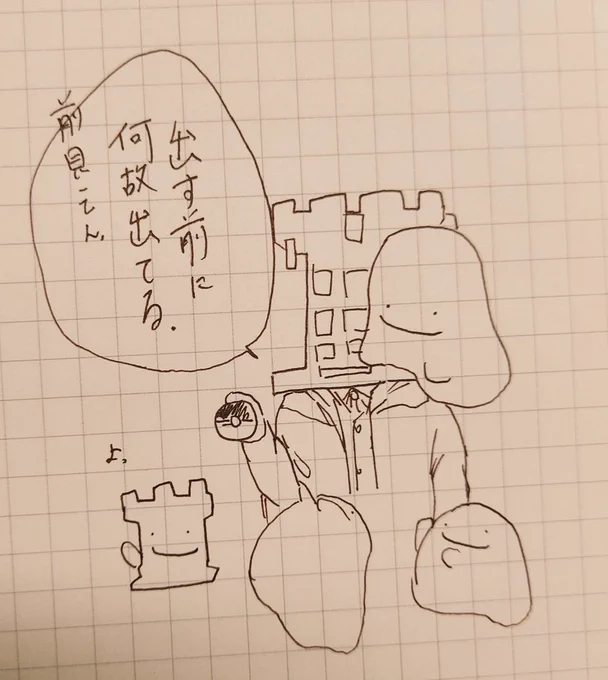 出す前に
何故出てる.
前見えん
よ。